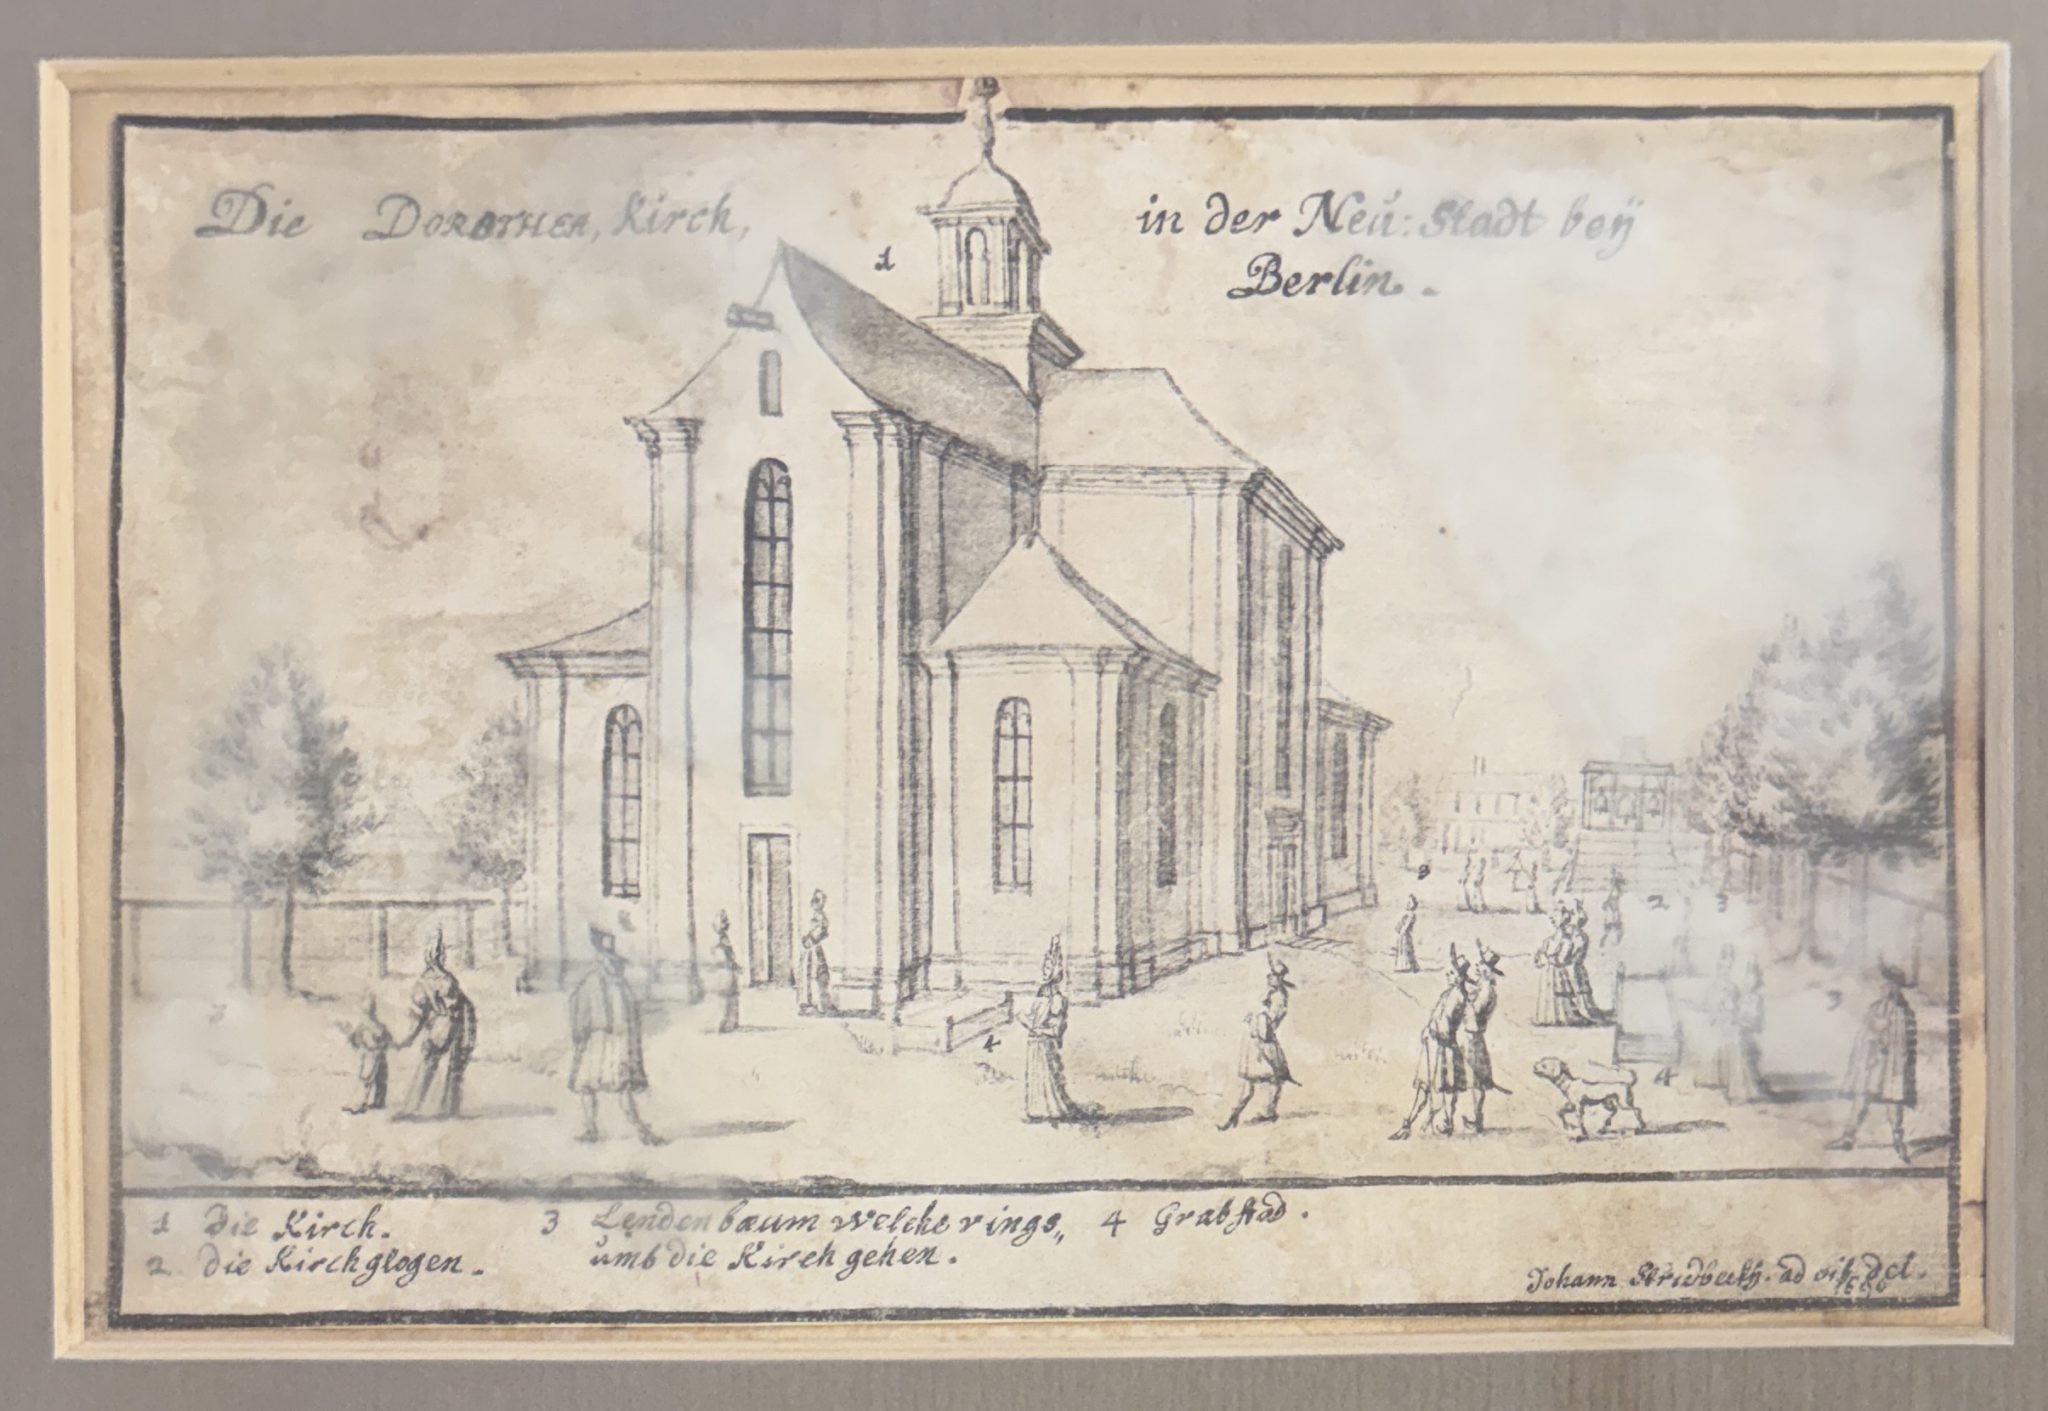 Die DOROTHEA, Kirch, in der Neü: Stadt beÿ
Berlin.
1
2
3
3
3
4
4
1 Die Kirch.
2 die Kirchglogen.
3 Lendenbæum welche rings,,
umb die Kirch gehen.
4 Grabstad.
Johann Stridbeckÿ. ad vif. del.